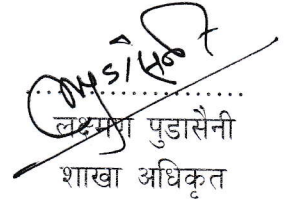 लक्ष्मण पुडासैनी
शाखा अधिकृत